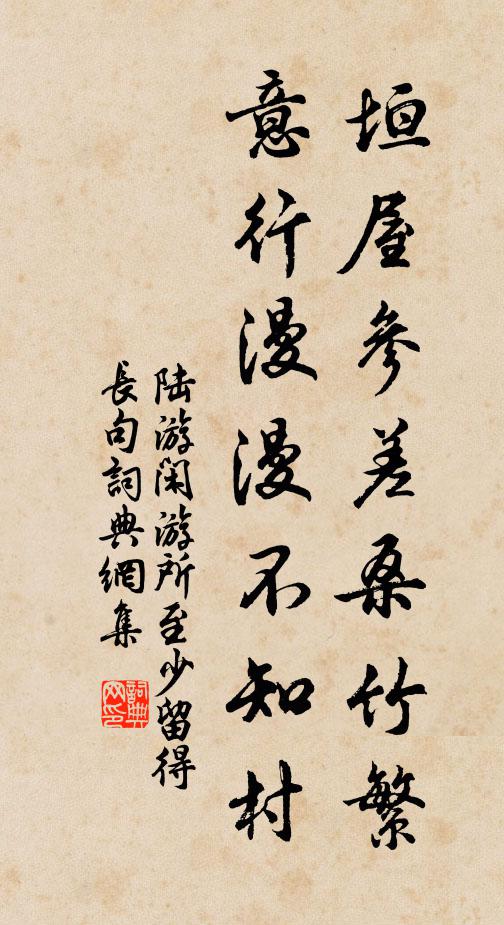 垣屋參差桑竹繁
意行漫漫不知村
陆游闲游所至少留得
長句詞典網集
詞典网印